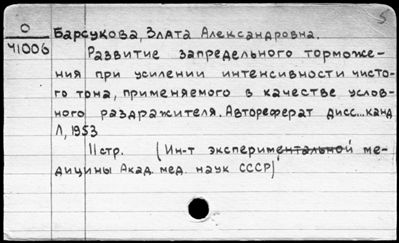 5
О
41006
Барсукова, Злата Александровна.
Развитие запредельного торможе-
ния при усилении интенсивности чисто-
го тона, применяемого в качестве услов-
ного раздражителя. Автореферат дисс...канд
Л, 1953
11 стр. (Ин-т экспериментальной ме-
дицины Акад. мед. наук СССР)